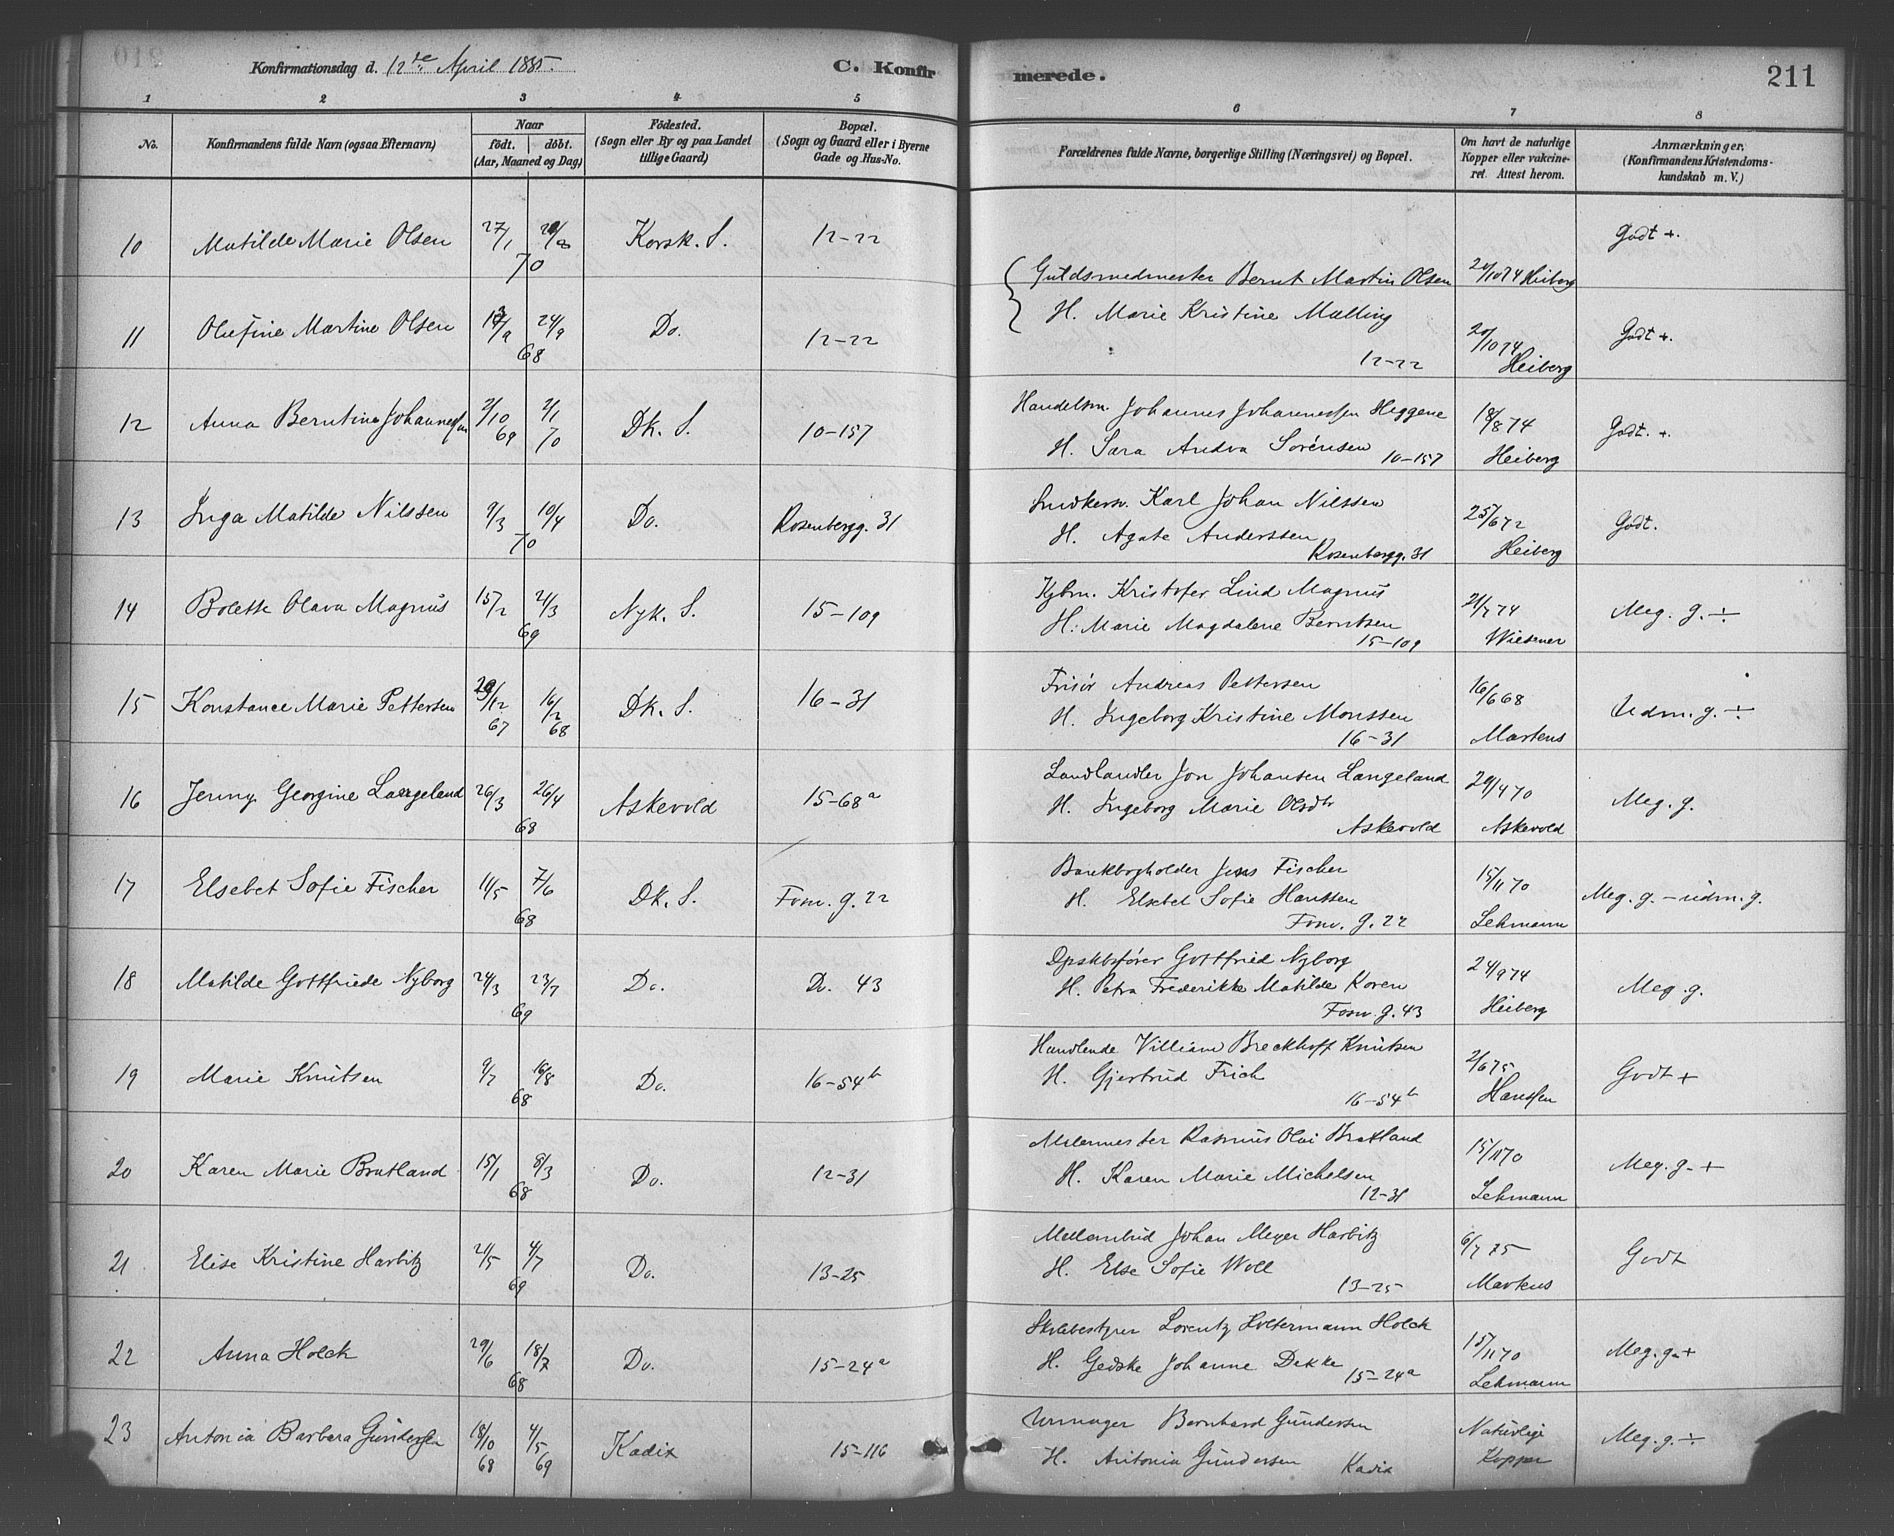 Konfirmationsdag d. 12te April 1885. C. Konfirmerede. 211
1 2 3 4 5 6 7 8
No. Konfirmandens fulde Navn (ogsaa Efternavn) Naar födt. döbt. (Aar, Maaned og Dag) Födested. (Sogn eller By og paa Landet tillige Gaard) Bopæl. (Sogn og Gaard eller i Byerne Gade og Hus-No. Forældrenes fulde Navne, borgerlige Stilling (Næringsvei) og Bopæl. Om havt de naturlige Kopper eller vakcineret. Attest herom. Anmærkninger. (Konfirmandens Kristendomskundskab m. V.)
10 Matilde Marie Olsen 27/1 70 Korsk. S. 12-22 Godt +.
Guldsmedmester Bernt Martin Olsen 20/10 74 Heiberg
H. Marie Kristine Malling
11 Olufine Martine Olsen 24/9 68 Do. 12-22 12-22 20/10 74 Heiberg Godt +.
12 Anna Berntine Johannessen 2/10 69 2/1 70 Dk. S. 10-157 Handelsm. Johannes Johannessen Heggene 18/8 74 Godt. +.
H. Sara Andrea Sørensen 10-157 Heiberg
13 Inga Matilde Nilssen 9/3 10/4 70 Do. Rosenbergg. 31 Snedkersv. Karl Johan Nilssen 25/6 72 Godt.
H. Agate Anderssen Rosenbergg. 31 Heiberg
14 Bolette Olava Magnus 15/2 2/3 69 Nyk. S. 15-109 Kjbm. Kristofer Lind Magnus 21/7 74 Meg. g. ÷
H. Marie Magdalene Berntsen 15-109 Wiesener
15 Konstance Marie Pettersen 67 16/2 68 Dk. S. 16-31 Frisør Andreas Pettersen 16/6 68 Udm. g. ÷
H. Ingeborg Kristine Monssen 16-31 Martens
16 Jenny Georgine Langeland 26/3 26/4 68 Askevold 15-68a Landhandler Jon Johansen Langeland 29/4 70 Meg. g.
H. Ingeborg Marie Olsdtr Askevold Askevold
17 Elsebet Sofie Fischer 11/5 7/6 68 Dk. S. Fosw. g. 22 Bankbogholder Jens Fischer 15/11 70 Meg. g. - udm. g.
H. Elsebet Sofie Hanssen Fosw. g. 22 Lehmann
18 Matilde Gottfriede Nyborg 24/3 23/7 69 Do. Do. 43 Dpskbsfører Gottfried Nyborg 24/9 74 Meg. g.
H. Petra Frederikke Matilde Koren Fosw. g. 43 Heiberg
19 Marie Knutsen 9/7 16/8 68 Do. 16-54b Handlende Villiam Breckhoff Knutsen 2/6 75 Godt +
H. Gjertrud Frich 16-54b Hanssen
20 Karen Marie Bratland 15/1 8/3 68 Do. 12-31 Malermester Rasmus Olai Bratland 15/11 70 Meg. g. +
H. Karen Marie Michelsen 12-31 Lehmann
21 Elise Kristine Harbitz 21/5 4/7 69 Do. 13-25 Mellembud Johan Meyer Harbitz 6/7 75 Godt
H. Else Sofie Woll 13-25 Markus
22 Anna Holck 29/6 18/7 68 Do. 15-24a Skolebestyrer Lorentz Holtermann Holck 15/11 70 Meg. g. +
H. Gedske Johanne Dekke 15-24a Lehmann
23 Antonia Barbara Gundersen 18/10 68 4/5 69 Kadix 15-116 Urmager Bernhard Gundersen Naturlige Meg. g. ÷
H. Antonia Gundersen Kadix Kopper